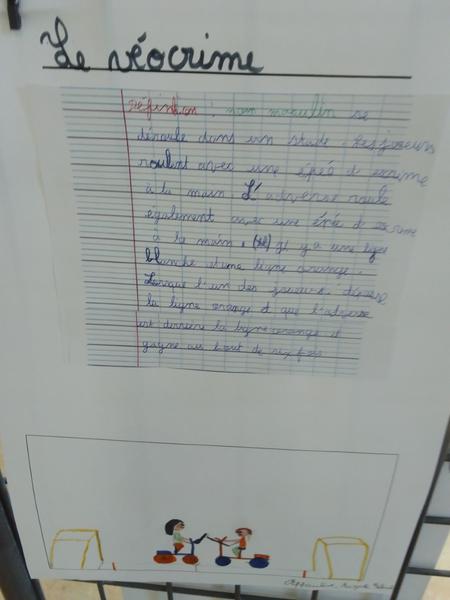 Le véocrime
Définition : nom masculin se
déroule dans un stade. Les joueurs
roulent avec une épéé d'escrime
à la main. L'adverse roule
également avec une épée d'escrime
à la main. Il y a une ligne
blanche et une ligne orange.
Lorsque l'un des joueurs dépasse
la ligne orange et que l'adverse
est derrière la ligne orange il
gagne au bout de six fois